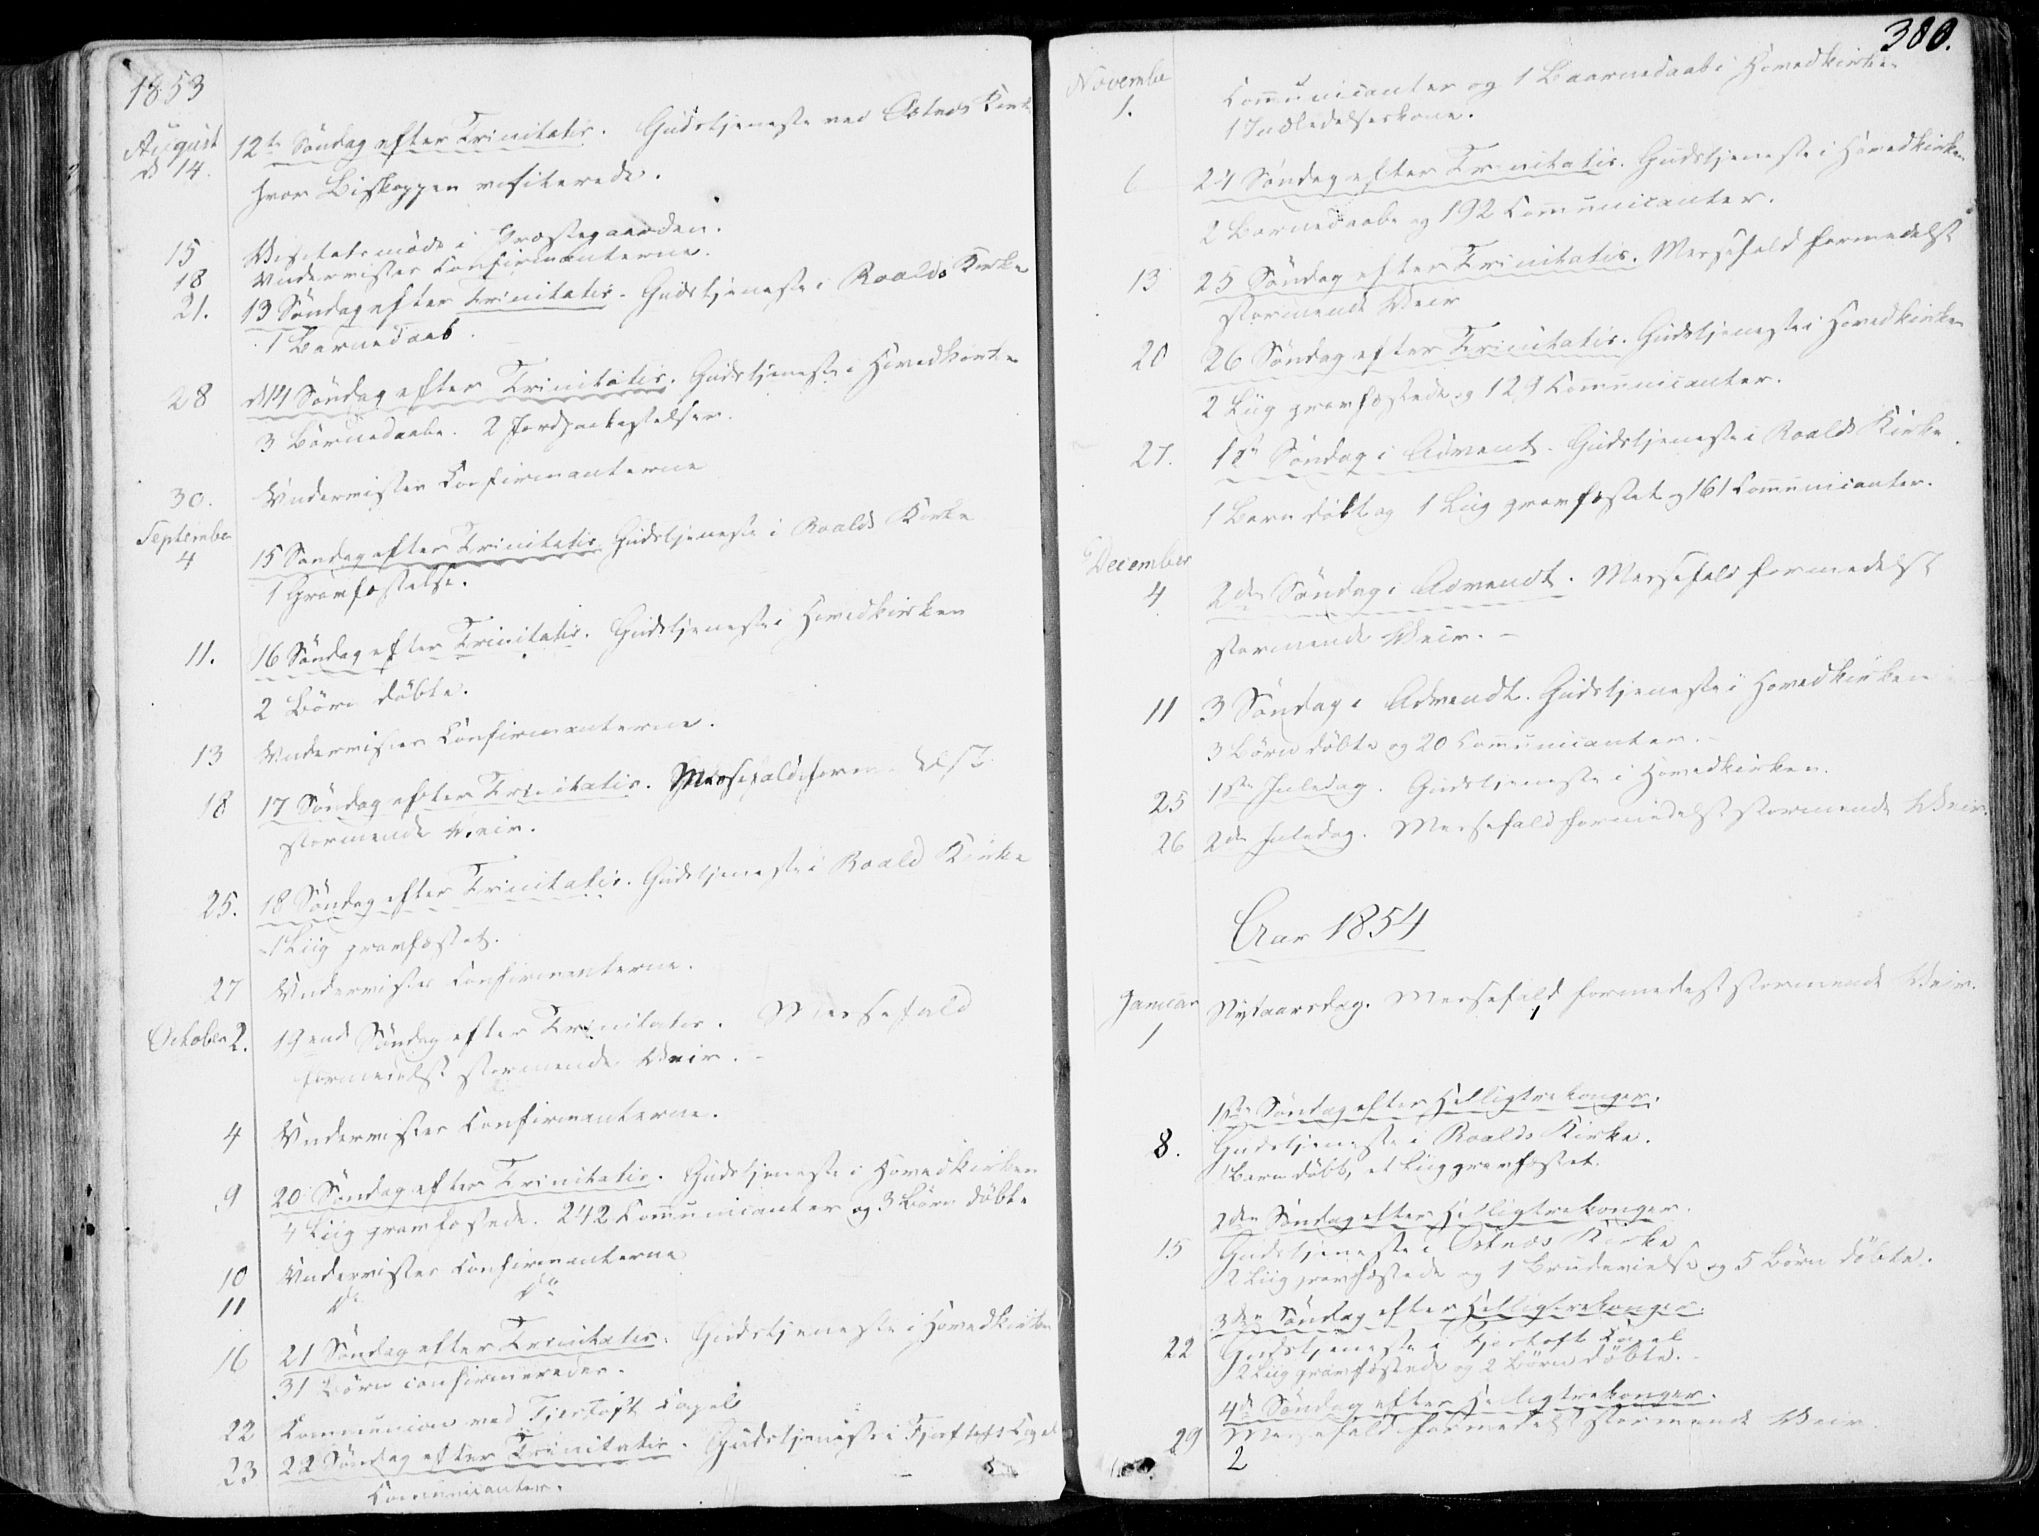 1853
August
d 14. 12te Søndag efter Trinitatis. Gudstjeneste ved Østnæs Kirke
hvor Biskoppen visiterede.
15 Visitatsmøde i Præstegaarden.
18 Undervistes Confirmanterne.
21. 13 Søndag efter Trinitatis. Gudstjeneste i Roalds Kirke
1 Barnedaab.
28 d 14 Søndag efter Trinitatis. Gudstjeneste i Hovedkirken
3 Barnedaabe. 2 Jordpaakastelser.
30. Undervistes Confirmanterne
September
4 15 Søndag efter Trinitatis. Gudstjeneste i Roalds Kirke
1 Gravfæstelse.
11. 16 Søndag efter Trinitatis. Gudstjeneste i Hovedkirken
2 Børn døbte.
13 Undervistes Confirmanterne.
18 17 Søndag efter Trinitatis. Messefald formedelst
stormende Veir.
25. 18 Søndag efter Trinitatis. Gudstjeneste i Roald Kirke
1 Liig gravfæstet.
27 Undervistes Confirmanterne.
October 2. 19end Søndag efter Trinitatis. Messefald
formedelst stormende Veir.
4 Undervistes Confirmanterne.
9 20 Søndag efter Trinitatis. Gudstjeneste i Hovedkirken
4 Liig gravfæstede. 242 Communicanter og 3 Børn døbte
10 Undervistes Confirmanterne
11 do do
16 21 Søndag efter Trinitatis. Gudstjeneste i Hovedkirken
31 Børn confirmeredes.
22 Communion ved Fjertoft Capel
23 22 Søndag efter Trinitatis. Gudstjeneste i Fjertoft Capel
Communicanter.
380.
November
1. Communicanter og 1 Baarnedaab i Hovedkirken
1 Indledelseskone.
6 24 Søndag efter Trinitatis. Gudstjeneste i Hovedkirken
2 Barnedaabe og 192 Communicanter.
13 25 Søndag efter Trinitatis. Messefald formedelst
stormende Veir
20 26 Søndag efter Trinitatis. Gudstjeneste i Hovedkirken
2 Liig gravfæstede og 129 Communicanter.
27. 1ste Søndag i Advent. Gudstjeneste i Roalds Kirke.
1 Barn døbt og 1 Liig gravfæstet og 161 Communicanter.
December
4 2den Søndag i Advendt. Messefald formedelst
stormende Veir.
11 3 Søndag i Advendt. Gudstjeneste i Hovedkirken
3 Børn døbte og 20 Communicanter.
25 1ste Juledag. Gudstjeneste i Hovedkirken.
26 2den Juledag. Messefald formedelst stormende Veir.
Aar 1854
Januar
1 Nytaarsdag. Messefald formedelst stormende Veir.
1ste Søndag efter Helligtrekonger.
8. Gudstjeneste i Roalds Kirke.
1 Barn døbt, et Liig gravfæstet.
2den Søndag efter Helligtrekonger.
15 Gudstjeneste i Østnæs Kirke
2 Liig gravfæstede og 1 Brudevielse og 5 Børn døbte.
3den Søndag efter Helligtrekonger.
22 Gudstjeneste i Fjertoft Capel
2 Liig gravfæstede og 2 Børn døbte.
4de Søndag efter Helligtrekonger.
29 Messefald formedelst stormende Veir.
2